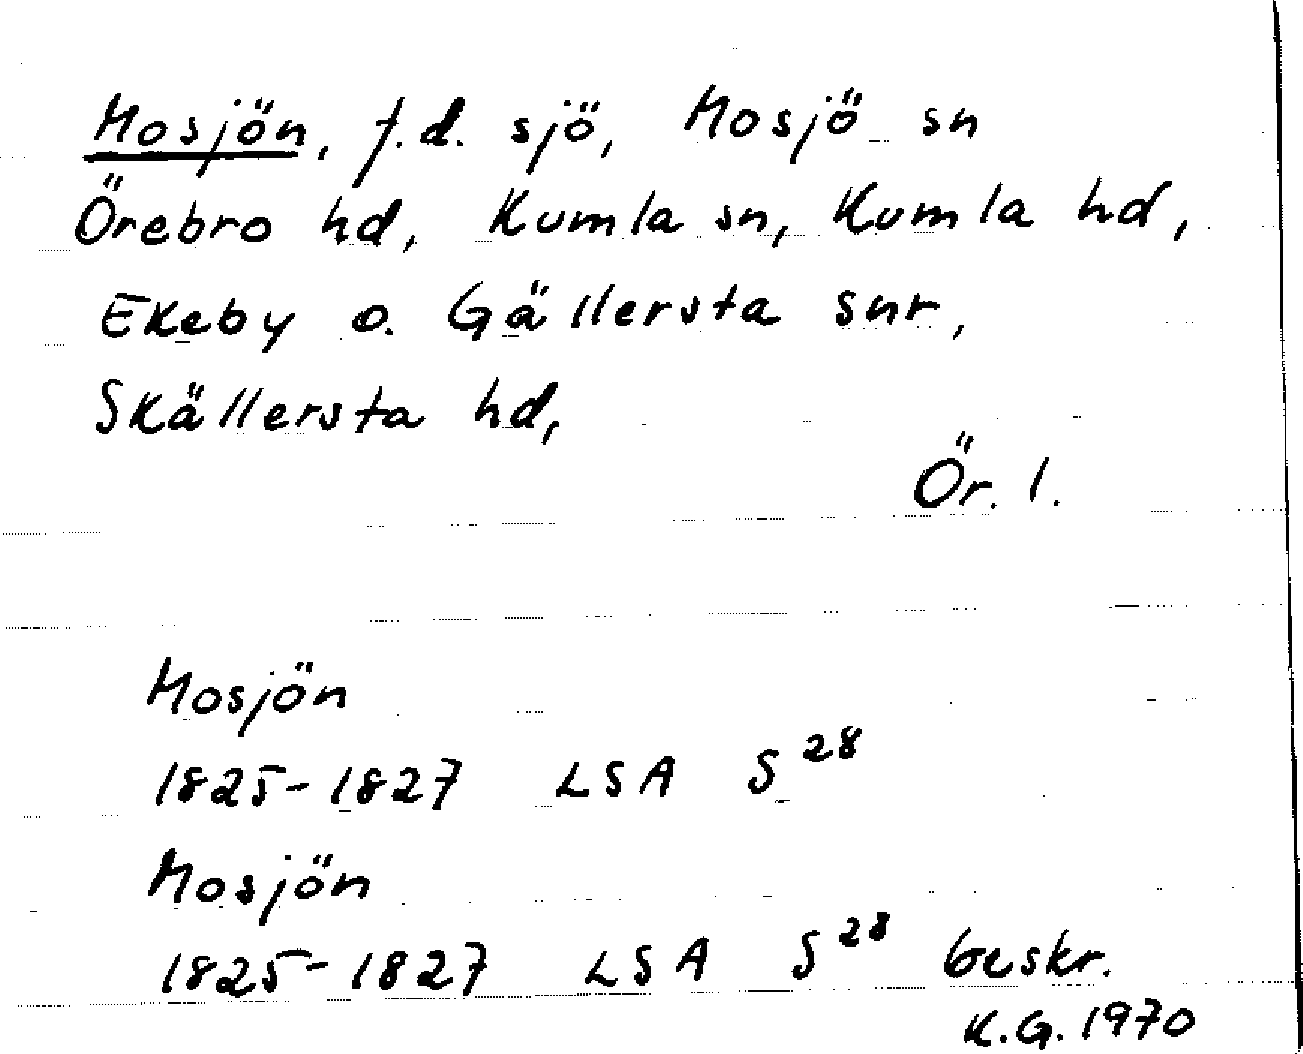 Mosjön, f.d. sjö, Mosjö sn
Örebro hd, Kumla sn, Kumla hd,
Ekeby o. Gällersta snr,
Skällersta hd,
Ör. l.
Mosjön
1825-1827 LSA S 28
Mosjön
1825-1827 LSA S 28 beskr.
K.G. 1970